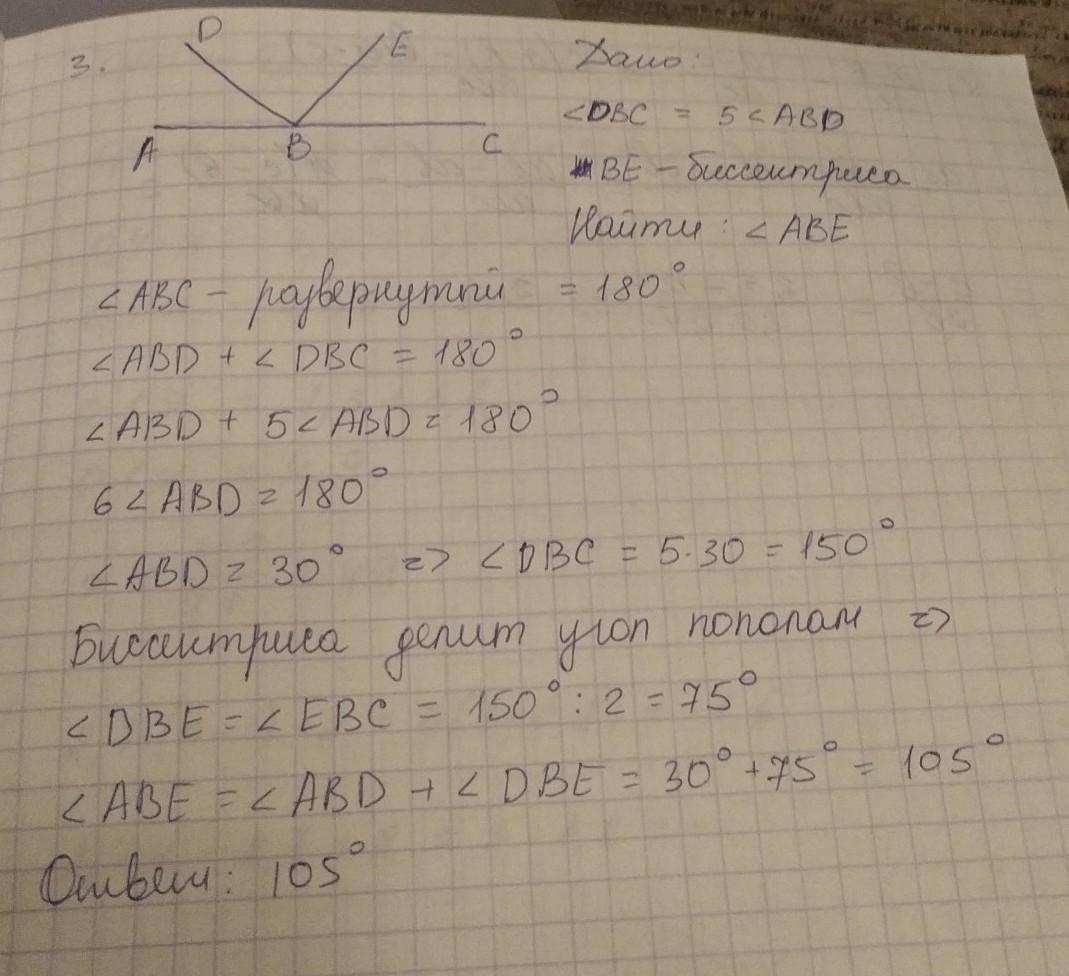 3.
D
E
A
B
C
Дано:
∠DBC = 5∠ABD
BE – биссектриса
Найти: ∠ABE
∠ABC – развернутый = 180°
∠ABD + ∠DBC = 180°
∠ABD + 5∠ABD = 180°
6∠ABD = 180°
∠ABD = 30° => ∠DBC = 5·30 = 150°
Биссектриса делит угол пополам =>
∠DBE = ∠EBC = 150° : 2 = 75°
∠ABE = ∠ABD + ∠DBE = 30° + 75° = 105°
Ответ: 105°